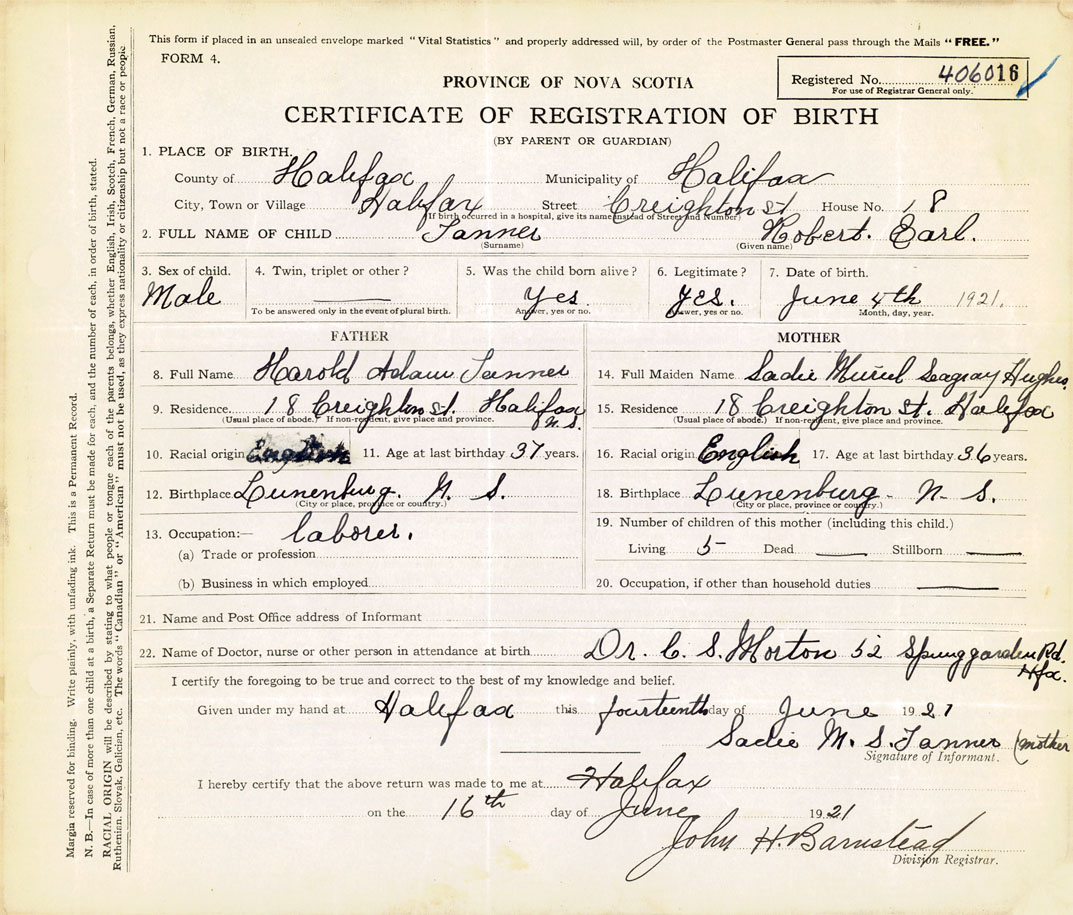 This form if placed in an unsealed envelope marked "Vital Statistics" and properly addressed will, by order of the Postmaster General pass through the Mails "FREE."
FORM 4.
Registered No. 406016
For use of Registrar General only.
PROVINCE OF NOVA SCOTIA
CERTIFICATE OF REGISTRATION OF BIRTH
(BY PARENT OR GUARDIAN)
1. PLACE OF BIRTH.
County of Halifax Municipality of Halifax
City, Town or Village Halifax Street Creighton St House No. 18
(If birth occurred in a hospital, give its name instead of Street and Number)
2. FULL NAME OF CHILD Tanner Robert. Earl.
(Surname) (Given name)
3. Sex of child. 4. Twin, triplet or other? 5. Was the child born alive? 6. Legitimate? 7. Date of birth.
Male Yes. Yes. June 4th 1921.
To be answered only in the event of plural birth. Answer, yes or no. Answer, yes or no. Month, day, year.
FATHER
8. Full Name Harold Adam Tanner
9. Residence 18 Creighton St. Halifax N.S.
(Usual place of abode.) If non-resident, give place and province.
10. Racial origin English 11. Age at last birthday 37 years.
12. Birthplace Lunenburg. N. S.
(City or place, province or country.)
13. Occupation:— laborer.
(a) Trade or profession
(b) Business in which employed
MOTHER
14. Full Maiden Name Sadie Muriel Seagray Hughes
15. Residence 18 Creighton St. Halifax
(Usual place of abode.) If non-resident, give place and province.
16. Racial origin English 17. Age at last birthday 36 years.
18. Birthplace Lunenburg - N. S.
(City or place, province or country.)
19. Number of children of this mother (including this child.)
Living 5 Dead Stillborn
20. Occupation, if other than household duties
21. Name and Post Office address of Informant
22. Name of Doctor, nurse or other person in attendance at birth Dr. C. S. Morton 52 Springgarden Rd. Hfx.
I certify the foregoing to be true and correct to the best of my knowledge and belief.
Given under my hand at Halifax this fourteenth day of June 1921
Sadie M. S. Tanner (mother
Signature of Informant.
I hereby certify that the above return was made to me at Halifax
on the 16th day of June 1921
John H. Barnstead
Division Registrar.
Margin reserved for binding. Write plainly, with unfading ink. This is a Permanent Record.
N. B.—In case of more than one child at a birth, a Separate Return must be made for each, and the number of each, in order of birth, stated.
RACIAL ORIGIN will be described by stating to what people or tongue each of the parents belongs, whether English, Irish, Scotch, French, German, Russian,
Ruthenian, Slovak, Galician, etc. The words "Canadian" or "American" must not be used, as they express nationality or citizenship but not a race or people